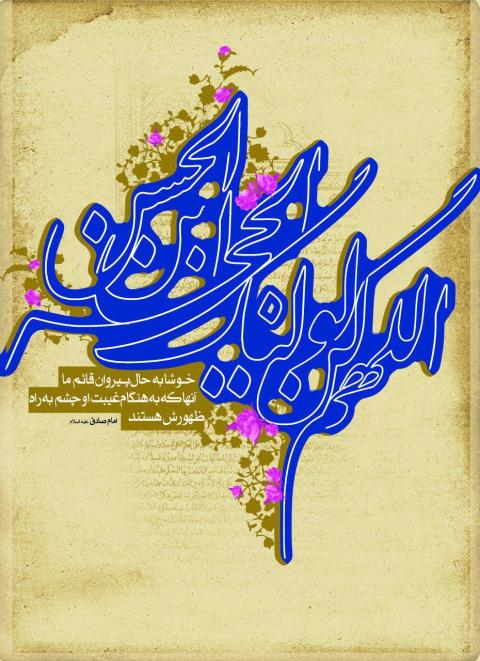 اللهم کن لولیک الحجة ابن الحسن
خوشا به حال پیروان قائم ما
آنها که به هنگام غیبت او چشم به راه
ظهورش هستند
امام صادق علیه السلام